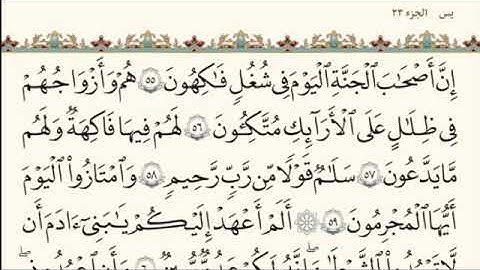 يس الجزء ٢٣
إِنَّ أَصْحَٰبَ ٱلْجَنَّةِ ٱلْيَوْمَ فِى شُغُلٍ فَٰكِهُونَ ٥٥ هُمْ وَأَزْوَٰجُهُمْ
فِى ظِلَٰلٍ عَلَى ٱلْأَرَآئِكِ مُتَّكِـُٔونَ ٥٦ لَهُمْ فِيهَا فَٰكِهَةٌ وَلَهُم
مَّا يَدَّعُونَ ٥٧ سَلَٰمٌ قَوْلًا مِّن رَّبٍّ رَّحِيمٍ ٥٨ وَٱمْتَٰزُوا۟ ٱلْيَوْمَ
أَيُّهَا ٱلْمُجْرِمُونَ ٥٩ ۞ أَلَمْ أَعْهَدْ إِلَيْكُمْ يَٰبَنِىٓ ءَادَمَ أَن